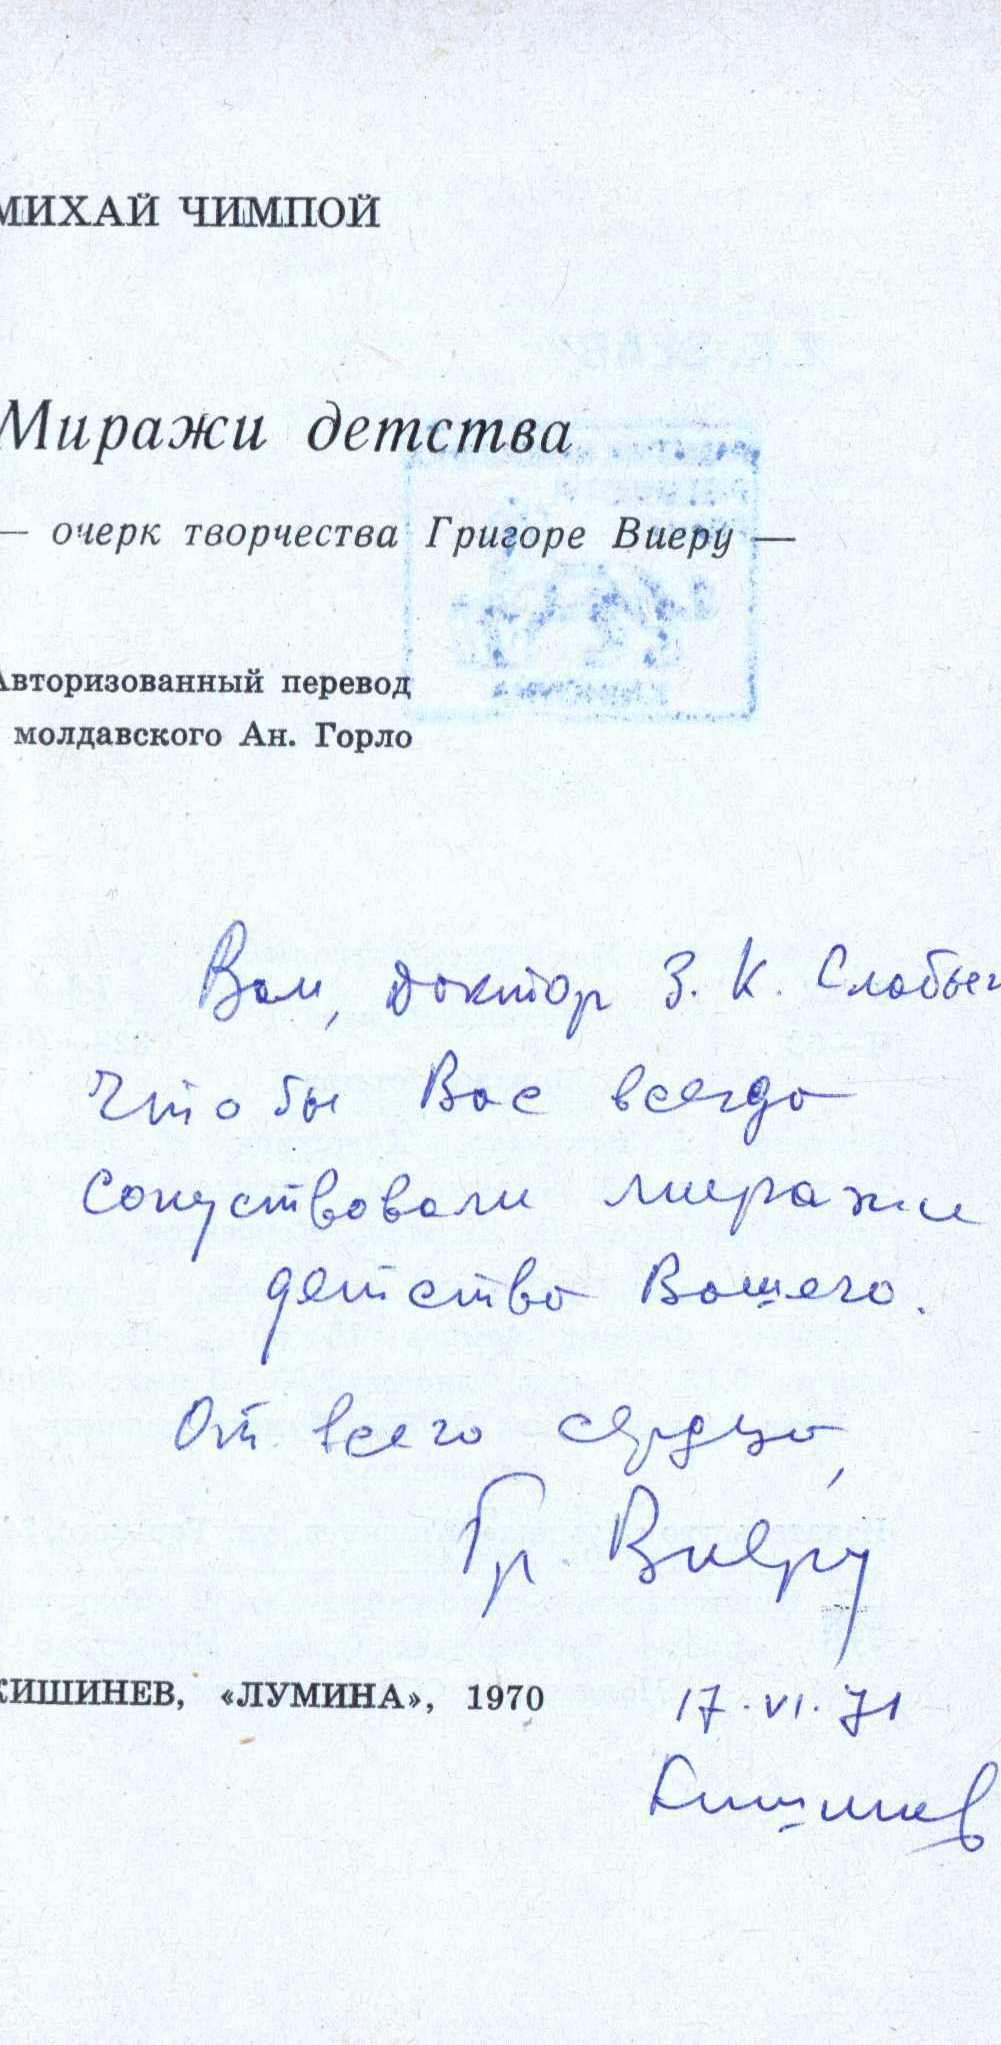 МИХАЙ ЧИМПОЙ
Миражи детства
— очерк творчества Григоре Виеру —
Авторизованный перевод
молдавского Ан. Горло
Вам, доктор З. К.
Чтобы Вас всегда
сопуствовали миражи
детства Вашего.
От всего сердца,
Гр. Виеру
КИШИНЕВ, «ЛУМИНА», 1970
17.VI.71
Кишинев